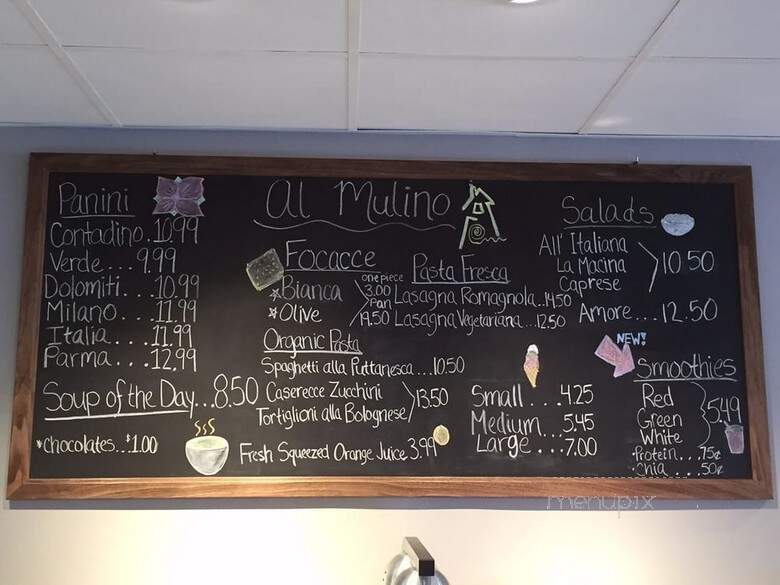 Al Mulino
Panini
Contadino.10.99
Verde...9.99
Dolomiti...10.99
Milano....11.99
Italia....11.99
Parma....12.99
Soup of the Day...8.50
*chocolates...$1.00
Focacce
Bianca
Olive
one piece
3.00
Pan
19.50
Organic Pasta
Spaghetti alla Puttanesca...10.50
Caserecce Zucchini
Tortiglioni alla Bolognese
13.50
Fresh Squeezed Orange Juice 3.99
Pasta Fresca
Lasagna Romagnola...14.50
Lasagna Vegetariana...12.50
Small....4.25
Medium...5.45
Large...7.00
Salads
All' Italiana
La Macina
Caprese
10.50
Amore...12.50
NEW!
Smoothies
Red
Green
White
5.49
•Protein...75¢
•Chia....50¢
menupix